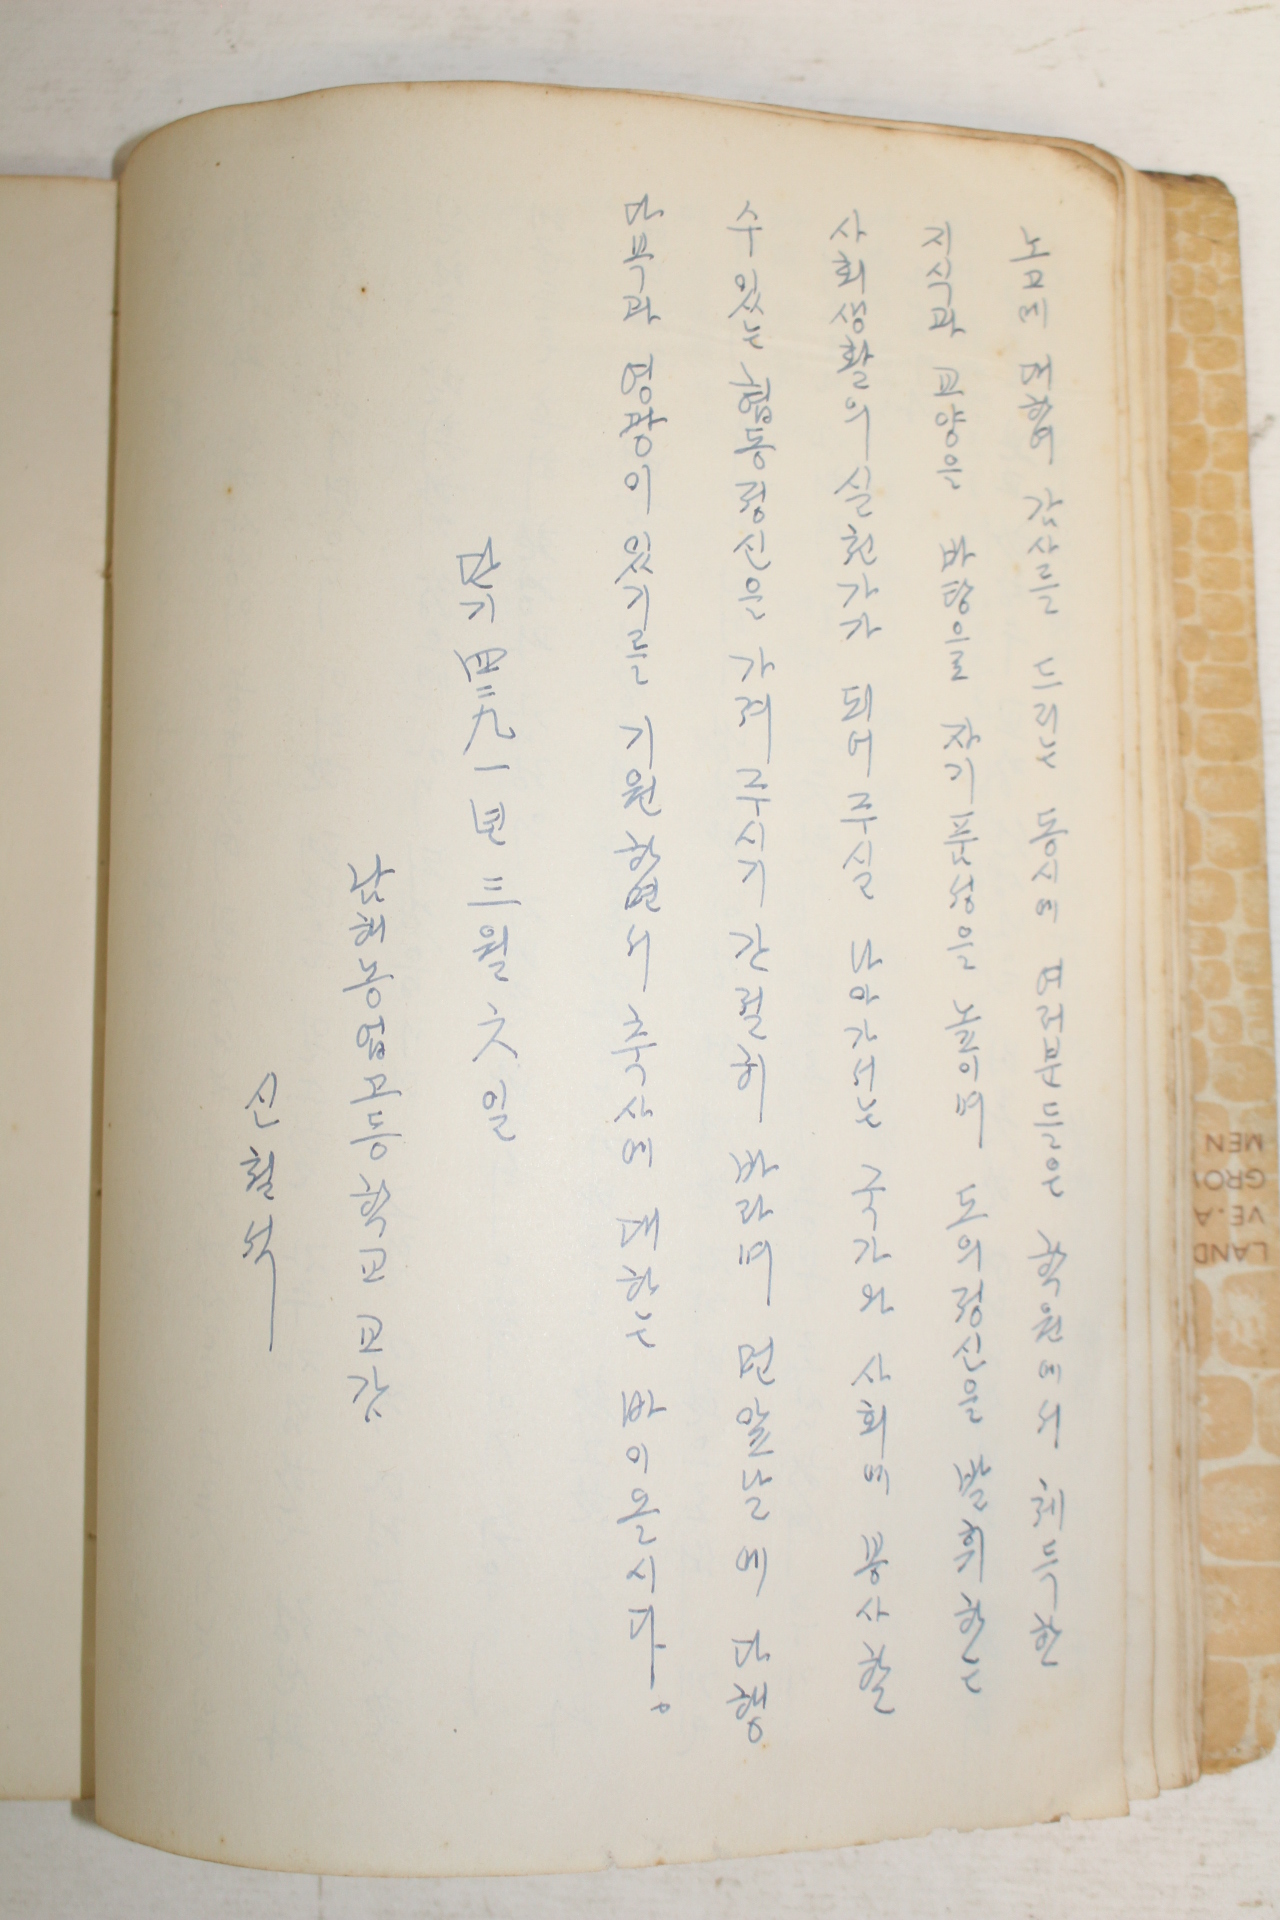 노고에 대하여 감사를 드리는 동시에 여러분들은 학원에서 체득한
지식과 교양을 바탕으로 자기 품성을 높이며 도의정신을 발휘하는
사회생활의 실천가가 되어주실 나아가서는 국가와 사회에 봉사할
수 있는 협동정신을 가져주시기 간절히 바라며 먼 앞날에 다행
다복과 영광이 있기를 기원하면서 축사에 대하는 바이올시다.
단기 四二九一년 三월 六일
남해농업고등학교 교감
신철석
LAND
VE.A
GRO
MEN